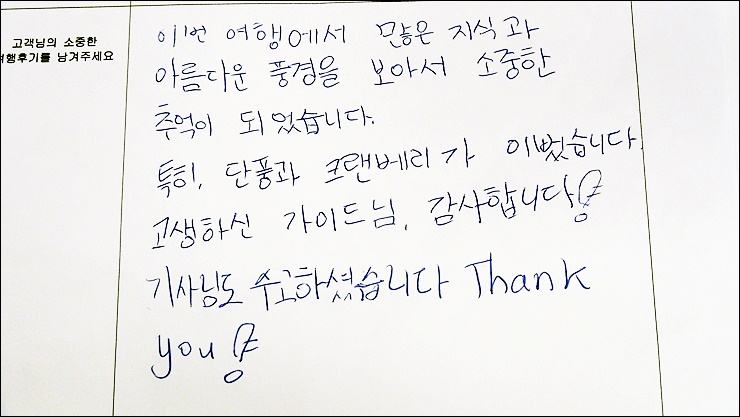 고객님의 소중한
여행후기를 남겨주세요
이번 여행에서 많은 지식과
아름다운 풍경을 보아서 소중한
추억이 되었습니다.
특히, 단풍과 크랜베리가 이뻤습니다.
고생하신 가이드님, 감사합니다!
기사님도 수고하셨습니다 Thank
you!